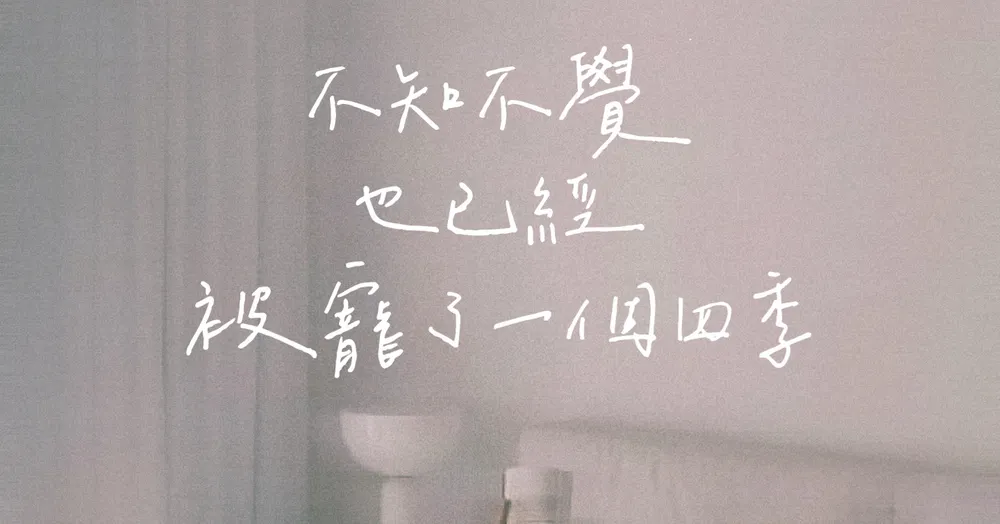 不知不覺
也已經
被寵了一個四季